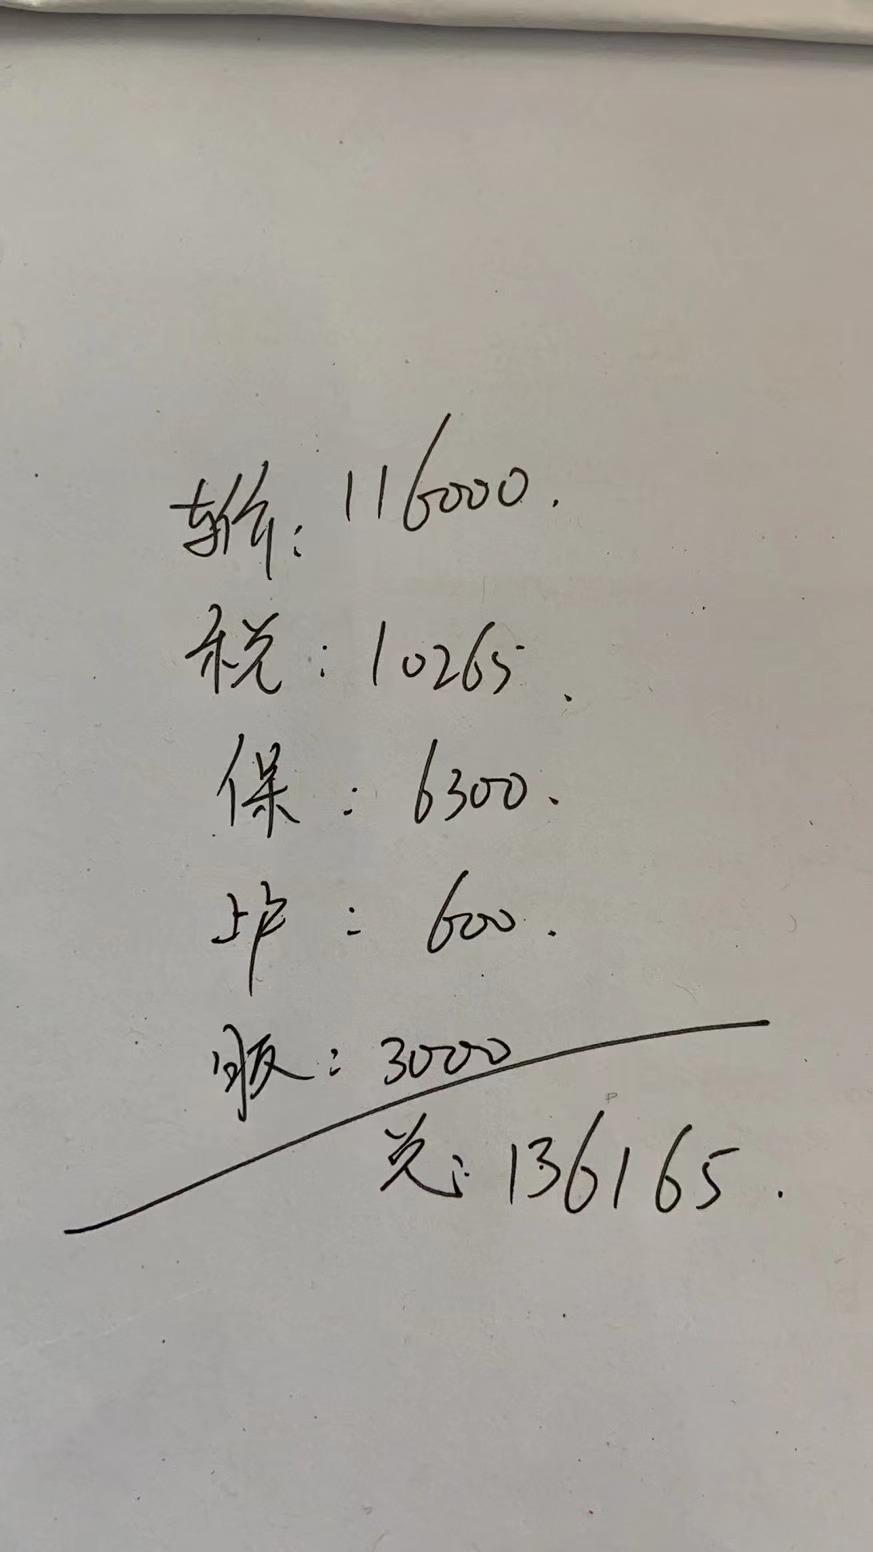 车价：116000.
税：10265.
保：6300.
上户：600.
服：3000
总：136165.